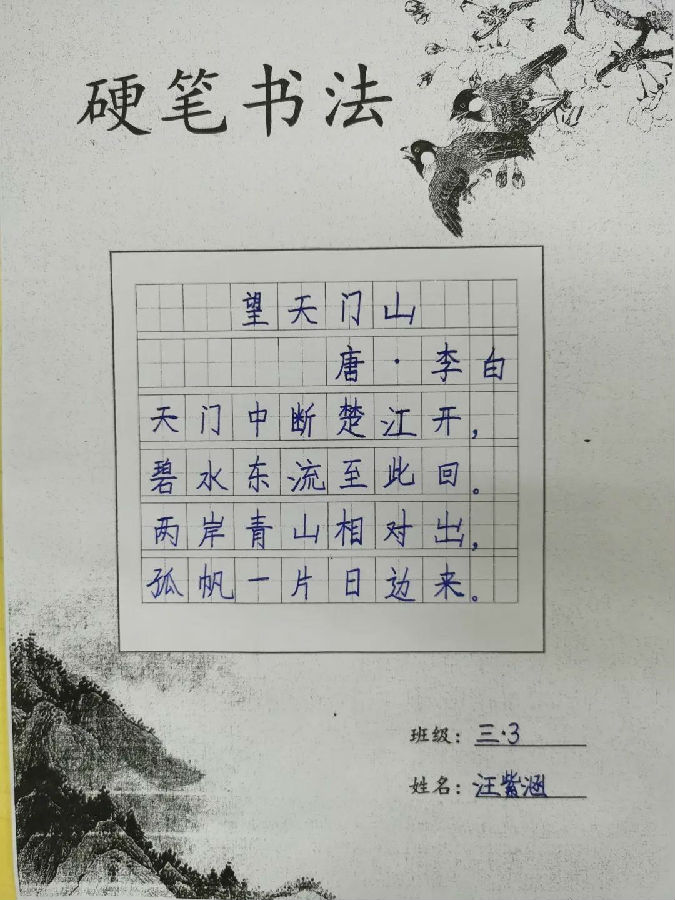 硬笔书法
望天门山
唐·李白
天门中断楚江开，
碧水东流至此回。
两岸青山相对出，
孤帆一片日边来。
班级：三·3
姓名：汪紫涵